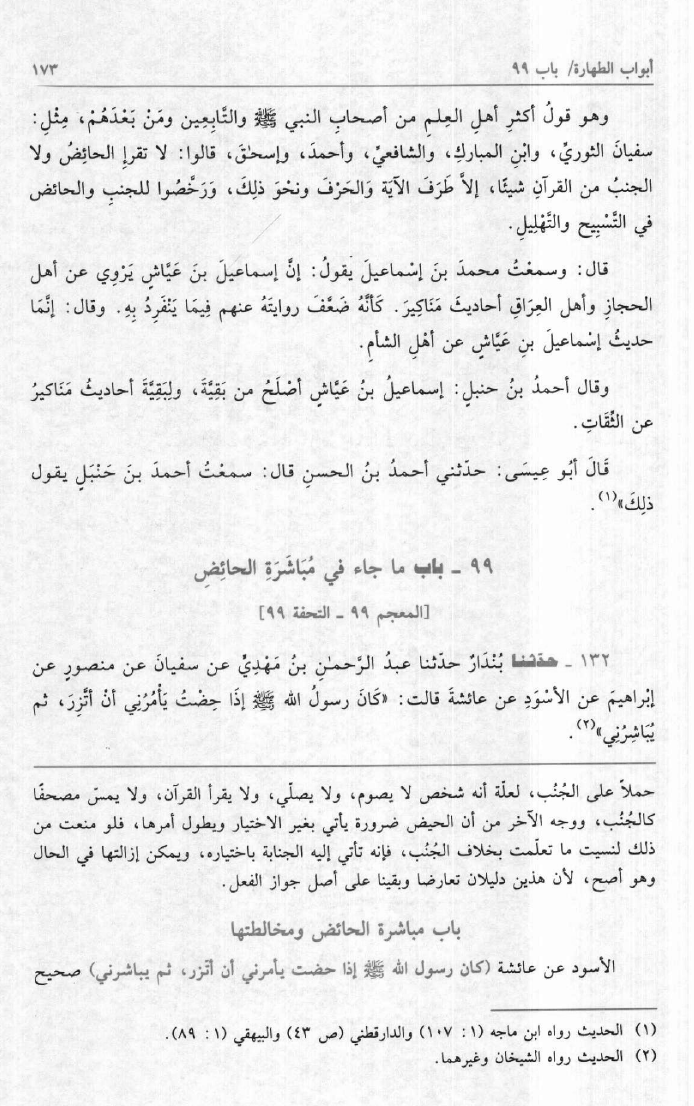 أبواب الطهارة/ باب ٩٩ ١٧٣
وهو قولُ أكثرِ أهلِ العِلمِ من أصحابِ النبي ﷺ والتَّابِعِين ومَنْ بَعْدَهُمْ، مِثْلِ:
سفيانَ الثوريِّ، وابْنِ المباركِ، والشافعيِّ، وأحمدَ، وإسحٰقَ، قالوا: لا تقرإِ الحائِضُ ولا
الجنبُ من القرآنِ شيئًا، إلاَّ طَرَفَ الآيَة وَالحَرْفَ ونحْوَ ذلِكَ، وَرَخَّصُوا للجنبِ والحائض
في التَّسْبِيح والتَّهْلِيلِ.
قال: وسمعْتُ محمدَ بنَ إسْماعيلَ يَقولُ: إنَّ إسماعيلَ بنَ عَيَّاشٍ يَرْوِي عن أهل
الحجازِ وأهل العِرَاقِ أحاديثَ مَنَاكِيرَ. كَأنَّهُ ضَعَّفَ روايتَهُ عنهم فِيمَا يَنْفَرِدُ بِهِ. وقال: إنَّمَا
حديثُ إسْماعيلَ بنِ عَيَّاشٍ عن أهْلِ الشأمِ.
وقال أحمدُ بنُ حنبلٍ: إسماعيلُ بنُ عَيَّاشٍ أصْلَحُ من بَقِيَّةَ، ولِبَقِيَّةَ أحاديثُ مَنَاكيرُ
عن الثِّقَاتِ.
قَالَ أبُو عِيسَى: حدّثني أحمدُ بنُ الحسنِ قال: سمعْتُ أحمدَ بنَ حَنْبَلٍ يقول
ذلِكَ»(١).
٩٩ ـ باب ما جاء في مُبَاشَرَةِ الحائِضِ
[المعجم ٩٩ ـ التحفة ٩٩]
١٣٢ ـ حدّثنا بُنْدَارٌ حدّثنا عبدُ الرَّحمٰنِ بنُ مَهْدِيٍّ عن سفيانَ عن منصورٍ عن
إبْراهيمَ عن الأسْوَدِ عن عائشةَ قالت: «كَانَ رسولُ الله ﷺ إذَا حِضْتُ يَأْمُرُنِي أنْ أتَّزِرَ، ثم
يُبَاشِرُنِي»(٢).
حملاً على الجُنُب، لعلّة أنه شخص لا يصوم، ولا يصلّي، ولا يقرأ القرآن، ولا يمسّ مصحفًا
كالجُنُب، ووجه الآخر من أن الحيض ضرورة يأتي بغير الاختيار ويطول أمرها، فلو منعت من
ذلك لنسيت ما تعلّمت بخلاف الجُنُب، فإنه تأتي إليه الجنابة باختياره، ويمكن إزالتها في الحال
وهو أصح، لأن هذين دليلان تعارضا وبقينا على أصل جواز الفعل.
باب مباشرة الحائض ومخالطتها
الأسود عن عائشة (كان رسول الله ﷺ إذا حضت يأمرني أن أتّزر، ثم يباشرني) صحيح
(١) الحديث رواه ابن ماجه (١ : ١٠٧) والدارقطني (ص ٤٣) والبيهقي (١ : ٨٩).
(٢) الحديث رواه الشيخان وغيرهما.